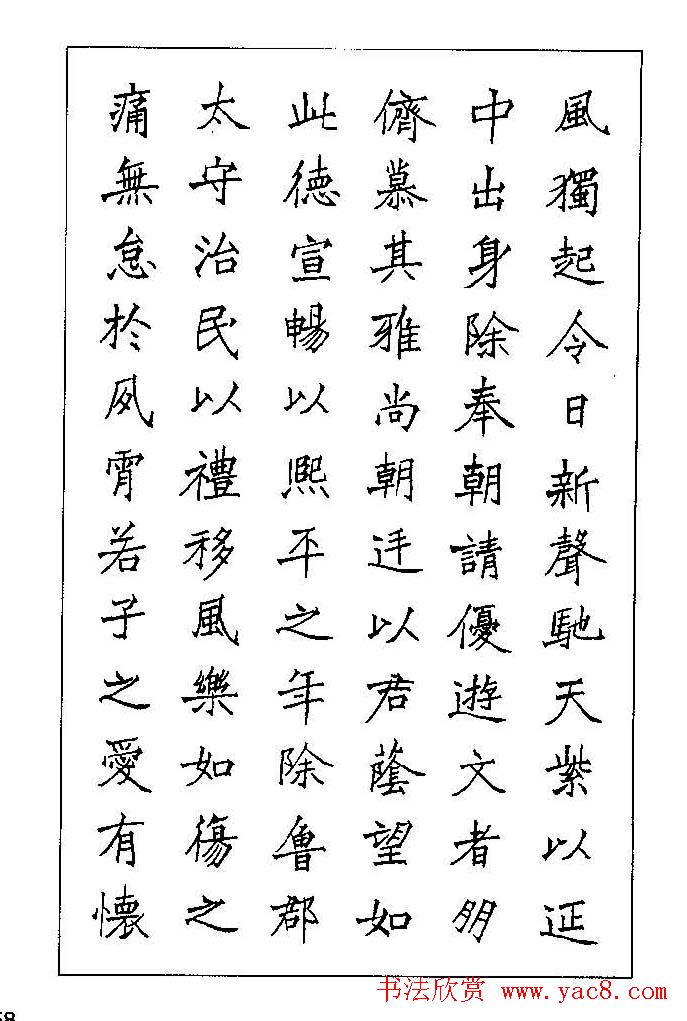 風獨起令日新聲馳天紫以延
中出身除奉朝請優遊文者朋
儕慕其雅尚朝廷以君蔭望如
此德宣暢以熙平之年除魯郡
太守治民以禮移風樂如傷之
痛無怠於夙霄若子之愛有懷
58
书法欣赏 www.yac8.com